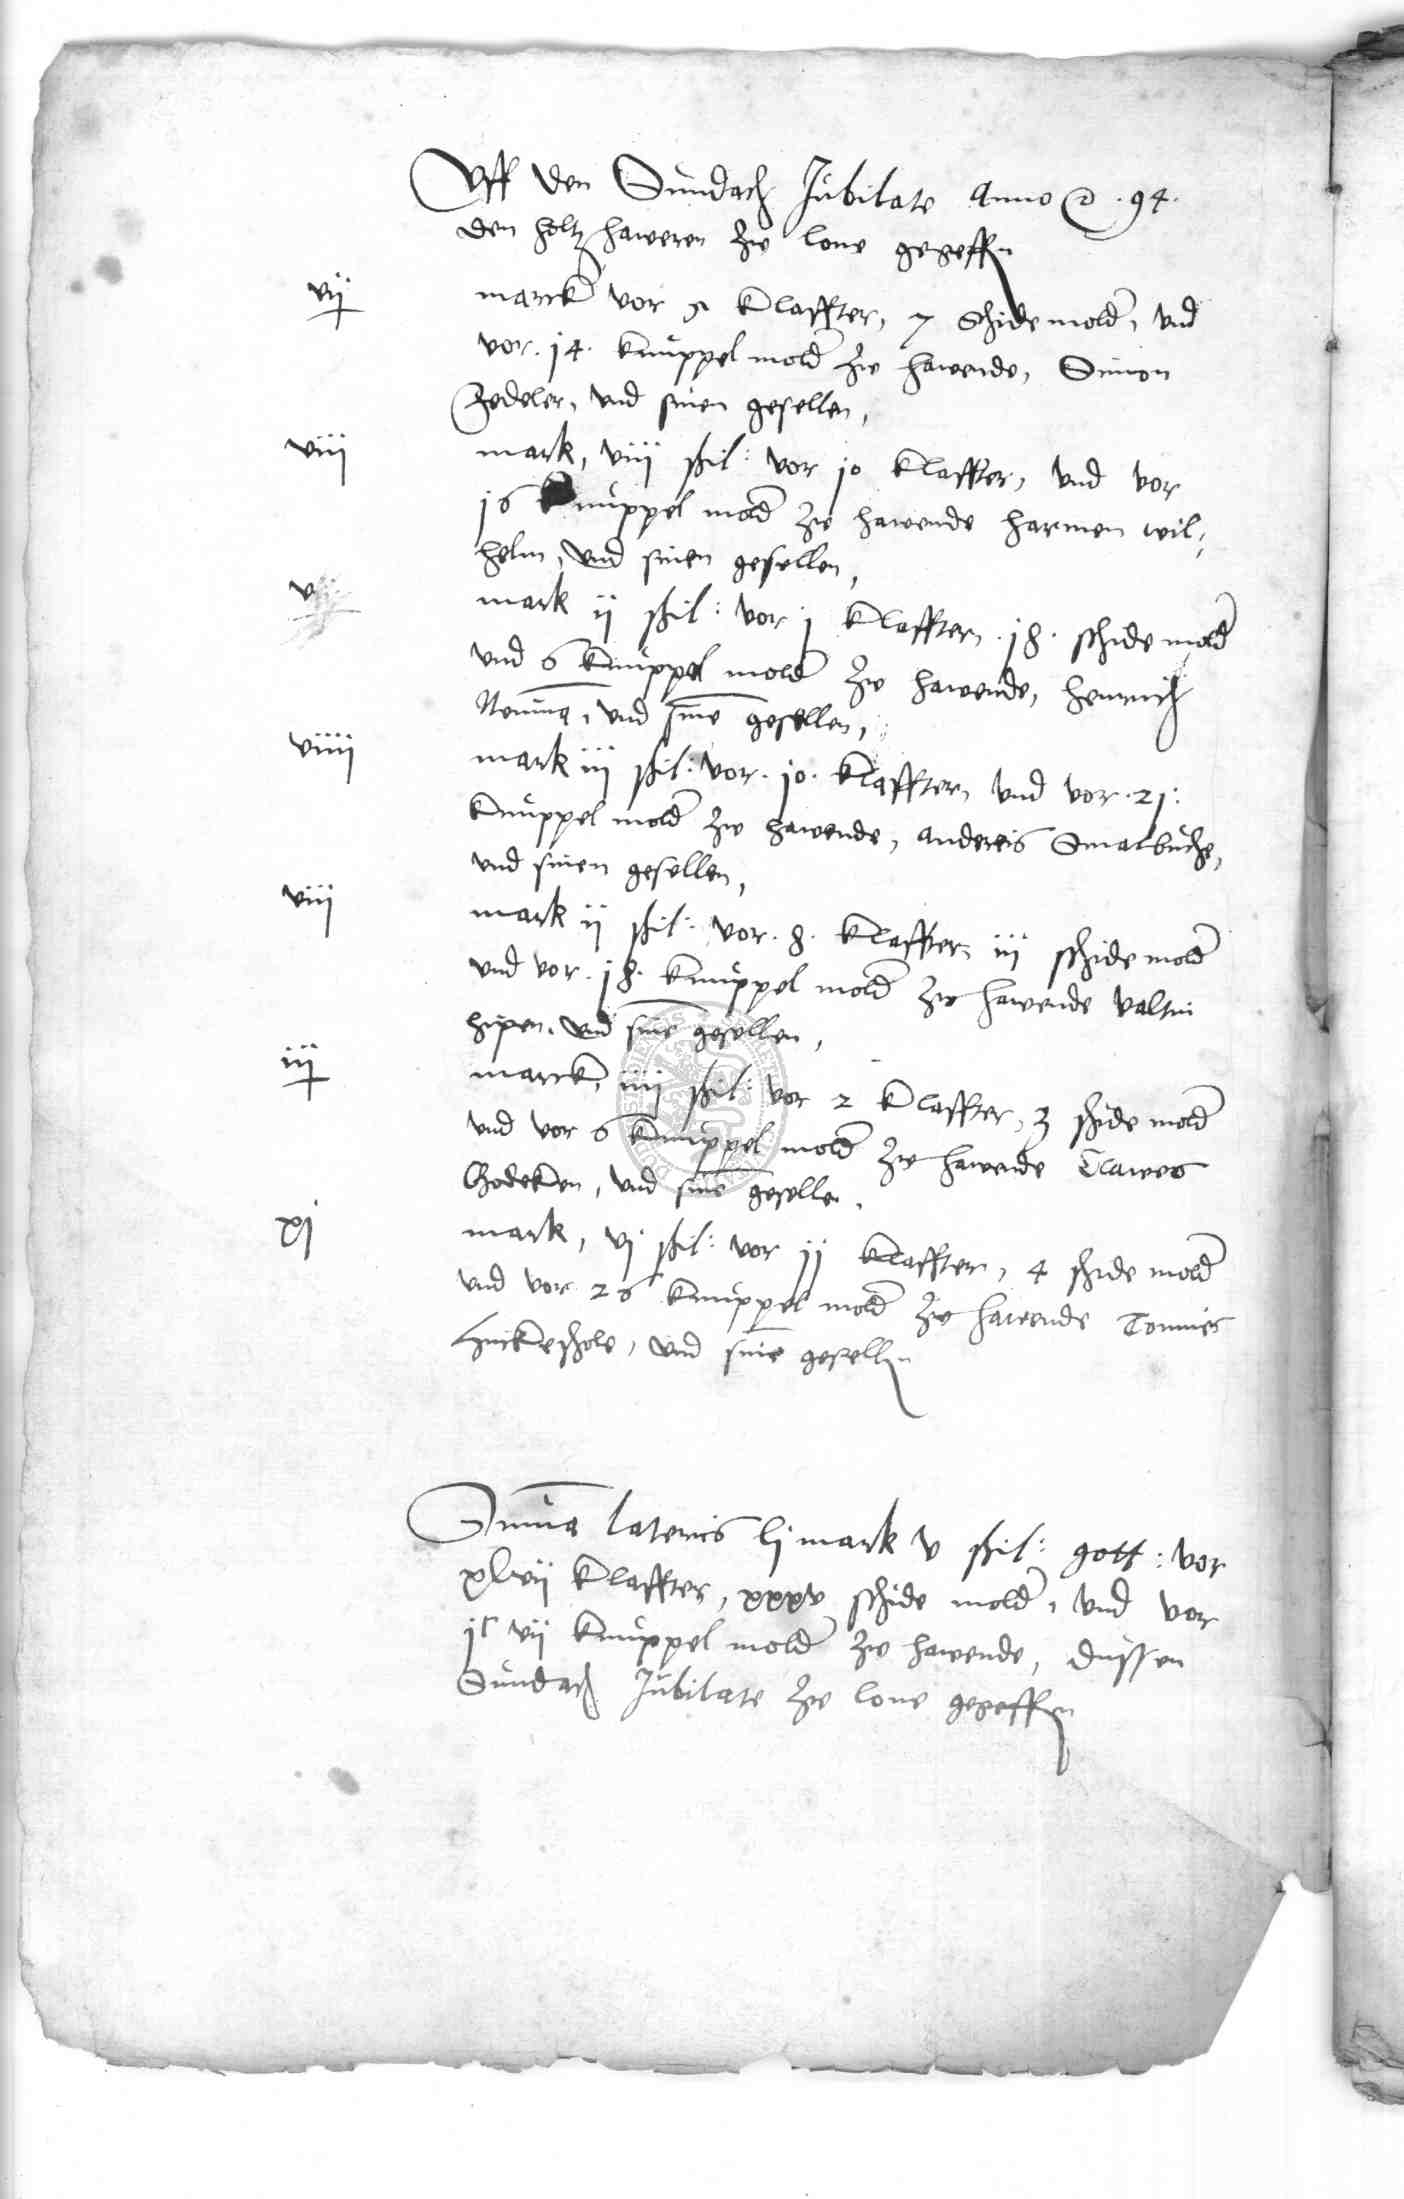 Vff den Sundach Jubilate Anno 94.
den holtz haweren zw lone gegeffen
vij marck vor 5 klaffter, 7 schide mold, vnd
vor .14. knuppel mold zw hawende, Simon
Zedeler, vnd sinen gesellen,
viii mark, viii ßil: vor 10 klaffter, vnd vor
16 knuppel mold zw hawende harmen wil,,
helm, vnd sinen gesellen,
v mark ii ßil: vor j klaffter .18. schide mold
vnd 6 knuppel mold zw hawende, henrich
vnd sine gesellen,
viiii mark iii ßil: vor .10. klaffter, vnd vor .21:
knuppel mold zw hawende, andereis Smalbuche,
vnd sinen gesellen,
viii mark ii ßil: vor .8. klaffter, iii schide mold
vnd vor .18. knuppel mold zw hawende valtin
hipen, vnd sine gesellen,
iii marck, iiii ßil: vor 2 klaffter, 3 schide mold
vnd vor 6 knuppel mold zw hawende Clawes
Godeken, vnd sine gesellen,
xj mark, vj ßil: vor jj klaffter, 4 schide mold
vnd vor 26 knuppel mold zw hawende Tonnies
vnd sine gesellen
Summa lateris lj mark v ßil: gott: vor
xlvii klaffter, xxxv schide mold, vnd vor
jc vii knuppel mold zw hawende, dussen
Sundach Jubilate zw lone gegeffen